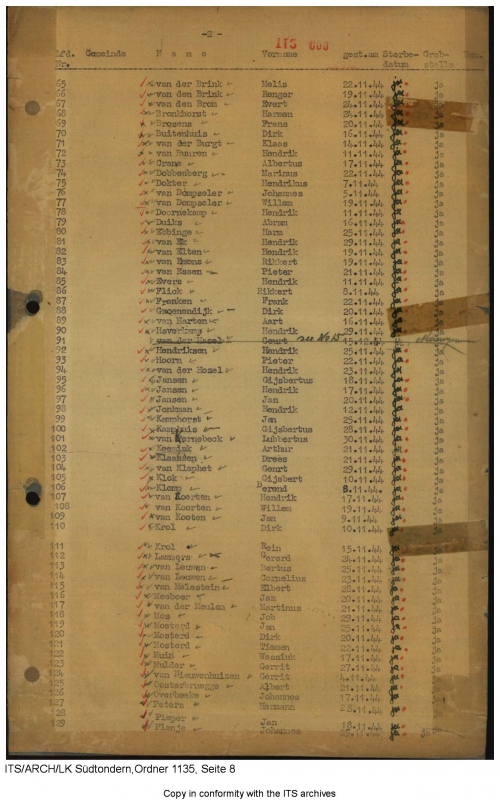 -2-
ITS 603
Lfd. Gemeinde Name Vorname gest.am Sterbe- Grab-
Nr. datum stelle
65 van der Brink Melis 22.11.44 ja
66 van den Brink Renger 19.11.44 ja
67 van den Brom Evert 24.11.44 ja
68 Bronkhorst Harmen 24.11.44 ja
69 Brosens Frans 20.11.44 ja
70 Buitenhuis Dirk 16.11.44 ja
71 van der Burgt Klaas 14.11.44 ja
72 van Buuren Hendrik 11.11.44 ja
73 Crans Albertus 17.11.44 ja
74 Dobbenberg Marinus 22.11.44 ja
75 Dokter Hendrikus 7.11.44 ja
76 van Dompseler Johannes 5.11.44 ja
77 van Dompseler Willem 19.11.44 ja
78 Doornekamp Hendrik 11.11.44 ja
79 Duiks Abram 16.11.44 ja
80 Ebbinge Harm 25.11.44 ja
81 van Ek Hendrik 29.11.44 ja
82 van Elten Hendrik 19.11.44 ja
83 van Emons Rikkert 19.11.44 ja
84 van Essen Pieter 21.11.44 ja
85 Evers Hendrik 11.11.44 ja
86 Fliek Rikkert 8.11.44 ja
87 Frenken Frenk 22.11.44 ja
88 Groenendijk Dirk 20.11.44 ja
89 van Harten Aart 16.11.44 ja
90 Haverkamp Hendrik 25.11.44 ja
91 van der Hazel Geurt see No 15 15.12.44 ja
92 Hendriksen Hendrik 25.11.44 ja
93 Hoorn Pieter 22.11.44 ja
94 van der Hozel Hendrik 23.11.44 ja
95 Jansen Gijsbertus 18.11.44 ja
96 Jansen Hendrik 17.11.44 ja
97 Jansen Jan 20.11.44 ja
98 Jonkman Hendrik 12.11.44 ja
99 Kamphorst Jan 25.11.44 ja
100 Kamphuis Gijsbertus 28.11.44 ja
101 Lubbertus 30.11.44 ja
102 Arthur 21.11.44 ja
103 Klaassen Drees 21.11.44 ja
104 van Klaphet Geurt 29.11.44 ja
105 Klok Gijsbert 10.11.44 ja
106 Klomp Berend 8.11.44 ja
107 van Koerten Hendrik 17.11.44 ja
108 van Koerten Willem 19.11.44 ja
109 van Kooten Jan 9.11.44 ja
110 Krol Dirk 10.11.44 ja
111 Krol Rein 15.11.44 ja
112 Lammers Gerard 24.11.44 ja
113 van Leusen Bertus 25.11.44 ja
114 van Leuwen Cornelius 23.11.44 ja
115 van Malestein Elbert 28.11.44 ja
116 Mesboer Jan 20.11.44 ja
117 van der Meulen Martinus 21.11.44 ja
118 Mos Job 29.11.44 ja
119 Mosterd Jan 25.11.44 ja
120 Mosterd Dirk 20.11.44 ja
121 Mosterd Tiemen 22.11.44 ja
122 Muis Wessiuk 17.11.44 ja
123 Mulder Gerrit 27.11.44 ja
124 van Nieuwenhuizen Gerrit 4.11.44 ja
125 Oosterbrugge Albert 21.11.44 ja
126 Overbeeke Johannes 17.11.44 ja
127 Peters Hermann 28.11.44 ja
128 Pieper Jan 18.11.44 ja
129 Planje Johannes ja
ITS/ARCH/LK Südtondern,Ordner 1135, Seite 8
Copy in conformity with the ITS archives